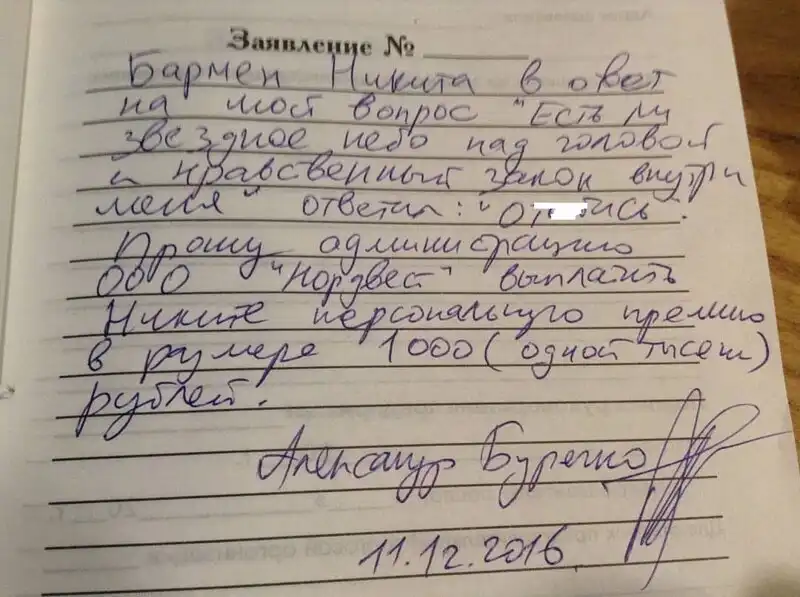 Заявление № ______
Бармен Никита в овет
на мой вопрос "Есть ли
звездное небо над головой
и нравственный закон внутри
меня" ответил: "От ись".
Прошу администрацию
ООО "Нордвест" выплатить
Никите персональную премию
в размере 1000 (одной тысечи)
рублей.
Александр
11.12.2016